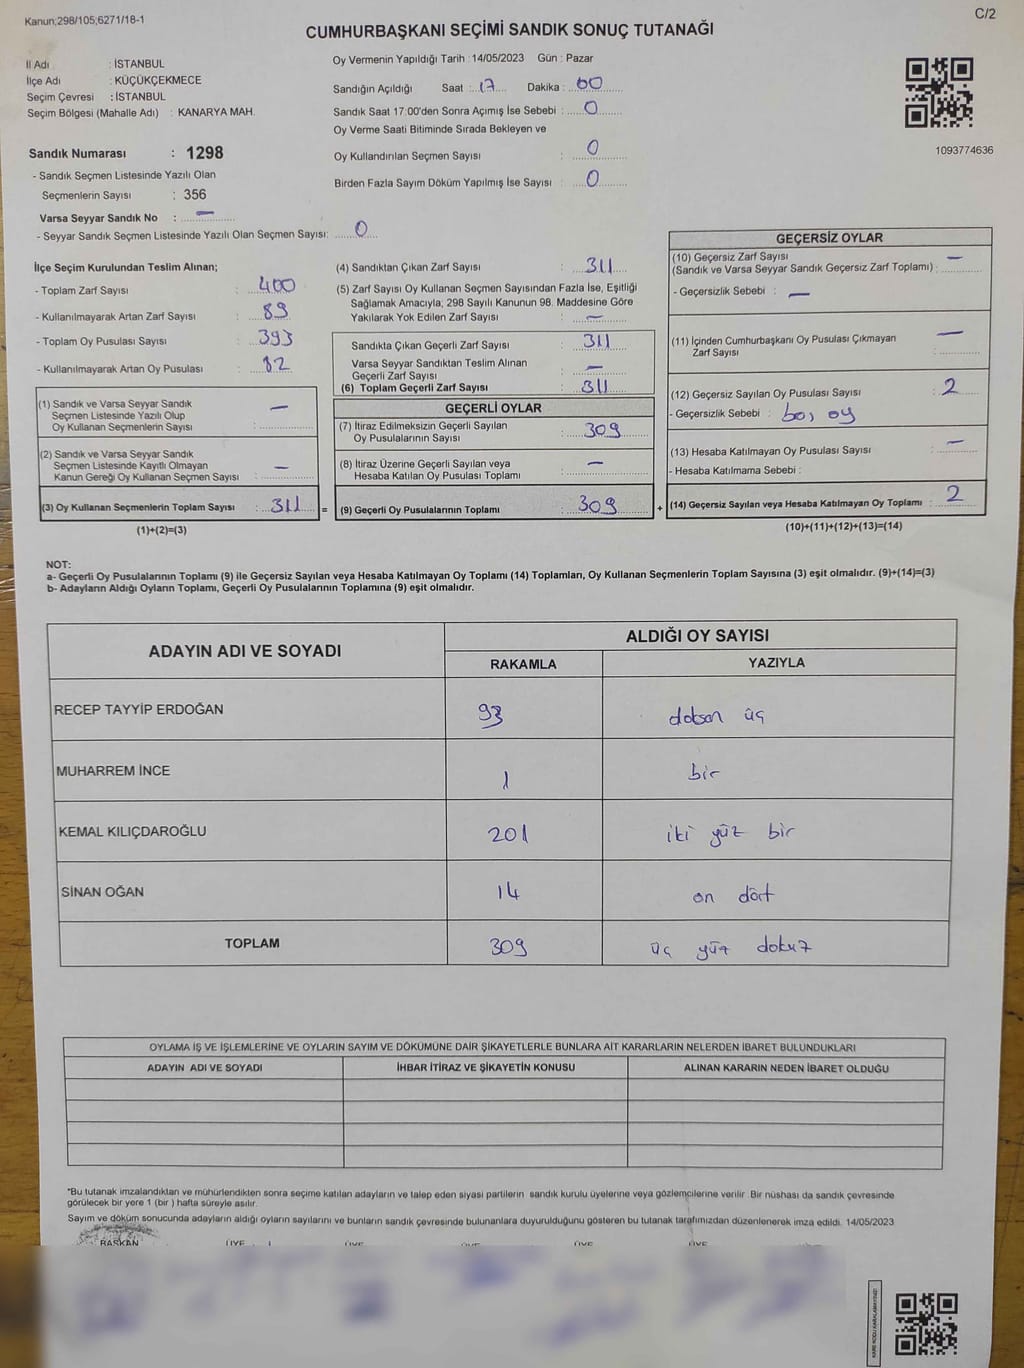 Kanun;298/105;6271/18-1
C/2
CUMHURBAŞKANI SEÇİMİ SANDIK SONUÇ TUTANAĞI
İl Adı : İSTANBUL
İlçe Adı : KÜÇÜKÇEKMECE
Seçim Çevresi : İSTANBUL
Seçim Bölgesi (Mahalle Adı) : KANARYA MAH.
Sandık Numarası : 1298
- Sandık Seçmen Listesinde Yazılı Olan
Seçmenlerin Sayısı : 356
Varsa Seyyar Sandık No : —
- Seyyar Sandık Seçmen Listesinde Yazılı Olan Seçmen Sayısı: 0
Oy Vermenin Yapıldığı Tarih : 14/05/2023 Gün : Pazar
Sandığın Açıldığı Saat : 17 Dakika : 00
Sandık Saat 17:00'den Sonra Açımış İse Sebebi : 0
Oy Verme Saati Bitiminde Sırada Bekleyen ve
Oy Kullandırılan Seçmen Sayısı : 0
Birden Fazla Sayım Döküm Yapılmış İse Sayısı : 0
1093774636
İlçe Seçim Kurulundan Teslim Alınan;
- Toplam Zarf Sayısı : 400
- Kullanılmayarak Artan Zarf Sayısı : 89
- Toplam Oy Pusulası Sayısı : 393
- Kullanılmayarak Artan Oy Pusulası : 82
(1) Sandık ve Varsa Seyyar Sandık
Seçmen Listesinde Yazılı Olup
Oy Kullanan Seçmenlerin Sayısı : —
(2) Sandık ve Varsa Seyyar Sandık
Seçmen Listesinde Kayıtlı Olmayan
Kanun Gereği Oy Kullanan Seçmen Sayısı : —
(3) Oy Kullanan Seçmenlerin Toplam Sayısı : 311 =
(1)+(2)=(3)
(4) Sandıktan Çıkan Zarf Sayısı : 311
(5) Zarf Sayısı Oy Kullanan Seçmen Sayısından Fazla İse, Eşitliği
Sağlamak Amacıyla; 298 Sayılı Kanunun 98. Maddesine Göre
Yakılarak Yok Edilen Zarf Sayısı : —
Sandıkta Çıkan Geçerli Zarf Sayısı : 311
Varsa Seyyar Sandıktan Teslim Alınan
Geçerli Zarf Sayısı : —
(6) Toplam Geçerli Zarf Sayısı : 311
GEÇERLİ OYLAR
(7) İtiraz Edilmeksizin Geçerli Sayılan
Oy Pusulalarının Sayısı : 309
(8) İtiraz Üzerine Geçerli Sayılan veya
Hesaba Katılan Oy Pusulası Toplamı : —
(9) Geçerli Oy Pusulalarının Toplamı : 309 +
GEÇERSİZ OYLAR
(10) Geçersiz Zarf Sayısı
(Sandık ve Varsa Seyyar Sandık Geçersiz Zarf Toplamı) : —
- Geçersizlik Sebebi : —
(11) İçinden Cumhurbaşkanı Oy Pusulası Çıkmayan
Zarf Sayısı : —
(12) Geçersiz Sayılan Oy Pusulası Sayısı : 2
- Geçersizlik Sebebi : boş oy
(13) Hesaba Katılmayan Oy Pusulası Sayısı : —
- Hesaba Katılmama Sebebi :
(14) Geçersiz Sayılan veya Hesaba Katılmayan Oy Toplamı : 2
(10)+(11)+(12)+(13)=(14)
NOT:
a- Geçerli Oy Pusulalarının Toplamı (9) ile Geçersiz Sayılan veya Hesaba Katılmayan Oy Toplamı (14) Toplamları, Oy Kullanan Seçmenlerin Toplam Sayısına (3) eşit olmalıdır. (9)+(14)=(3)
b- Adayların Aldığı Oyların Toplamı, Geçerli Oy Pusulalarının Toplamına (9) eşit olmalıdır.
ADAYIN ADI VE SOYADI
ALDIĞI OY SAYISI
RAKAMLA YAZIYLA
RECEP TAYYİP ERDOĞAN 93 doksan üç
MUHARREM İNCE 1 bir
KEMAL KILIÇDAROĞLU 201 iki yüz bir
SİNAN OĞAN 14 on dört
TOPLAM 309 üç yüz dokuz
OYLAMA İŞ VE İŞLEMLERİNE VE OYLARIN SAYIM VE DÖKÜMÜNE DAİR ŞİKAYETLERLE BUNLARA AİT KARARLARIN NELERDEN İBARET BULUNDUKLARI
ADAYIN ADI VE SOYADI İHBAR İTİRAZ VE ŞİKAYETİN KONUSU ALINAN KARARIN NEDEN İBARET OLDUĞU
*Bu tutanak imzalandıktan ve mühürlendikten sonra seçime katılan adayların ve talep eden siyasi partilerin sandık kurulu üyelerine veya gözlemcilerine verilir. Bir nüshası da sandık çevresinde
görülecek bir yere 1 (bir ) hafta süreyle asılır.
Sayım ve döküm sonucunda adayların aldığı oyların sayılarını ve bunların sandık çevresinde bulunanlara duyurulduğunu gösteren bu tutanak tarafımızdan düzenlenerek imza edildi. 14/05/2023
BAŞKAN ÜYE ÜYE ÜYE ÜYE ÜYE